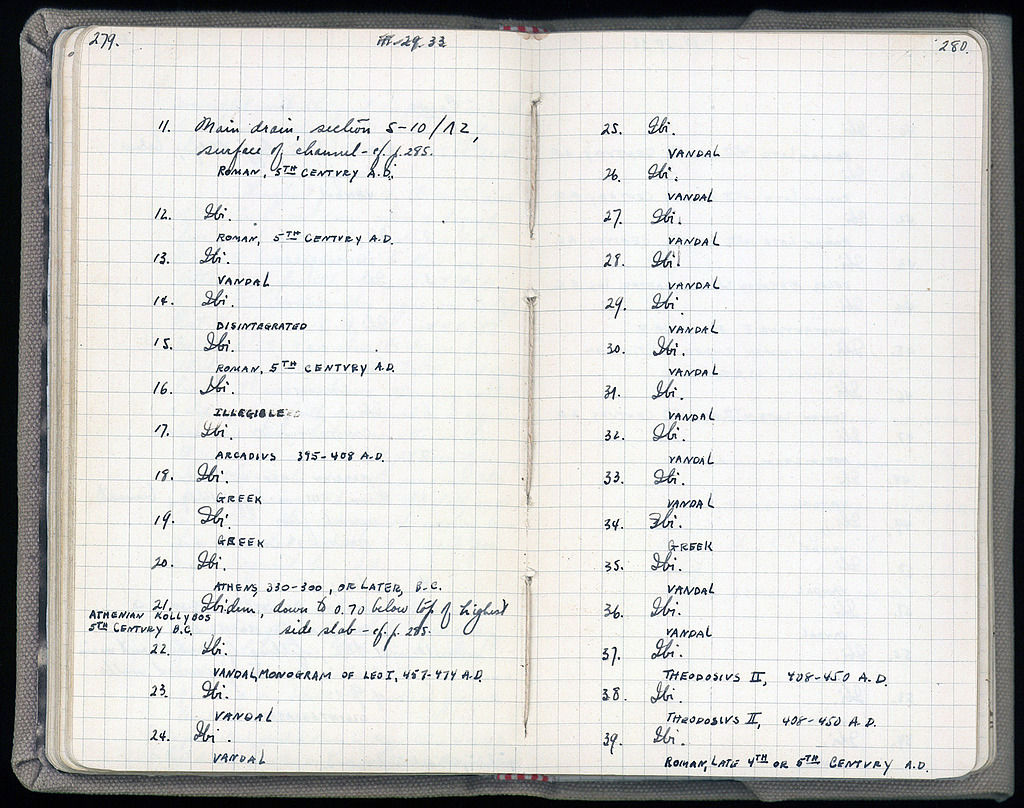 279.
III-29-33
11. Main drain, section S-10/12,
surface of channel - cf. p. 285.
ROMAN, 5TH CENTVRY A.D.
12. Ibi.
ROMAN, 5TH CENTVRY A.D.
13. Ibi.
VANDAL
14. Ibi.
DISINTEGRATED
15. Ibi.
ROMAN, 5TH CENTVRY A.D.
16. Ibi.
ILLEGIBLE
17. Ibi.
ARCADIVS 395-408 A.D.
18. Ibi.
GREEK
19. Ibi.
GREEK
20. Ibi.
ATHENS, 330-300, OR LATER, B.C.
21. Ibidem, down to 0.70 below top of highest
side slab - cf. p. 285.
ATHENIAN KOLLYBOS
5TH CENTVRY B.C.
22. Ibi.
VANDAL, MONOGRAM OF LEO I, 457-474 A.D.
23. Ibi.
VANDAL
24. Ibi.
VANDAL
280.
25. Ibi.
VANDAL
26. Ibi.
VANDAL
27. Ibi.
VANDAL
28. Ibi.
VANDAL
29. Ibi.
VANDAL
30. Ibi.
VANDAL
31. Ibi.
VANDAL
32. Ibi.
VANDAL
33. Ibi.
VANDAL
34. Ibi.
GREEK
35. Ibi.
VANDAL
36. Ibi.
VANDAL
37. Ibi.
THEODOSIVS II, 408-450 A.D.
38. Ibi.
THEODOSIVS II, 408-450 A.D.
39. Ibi.
ROMAN, LATE 4TH OR 5TH CENTVRY A.D.